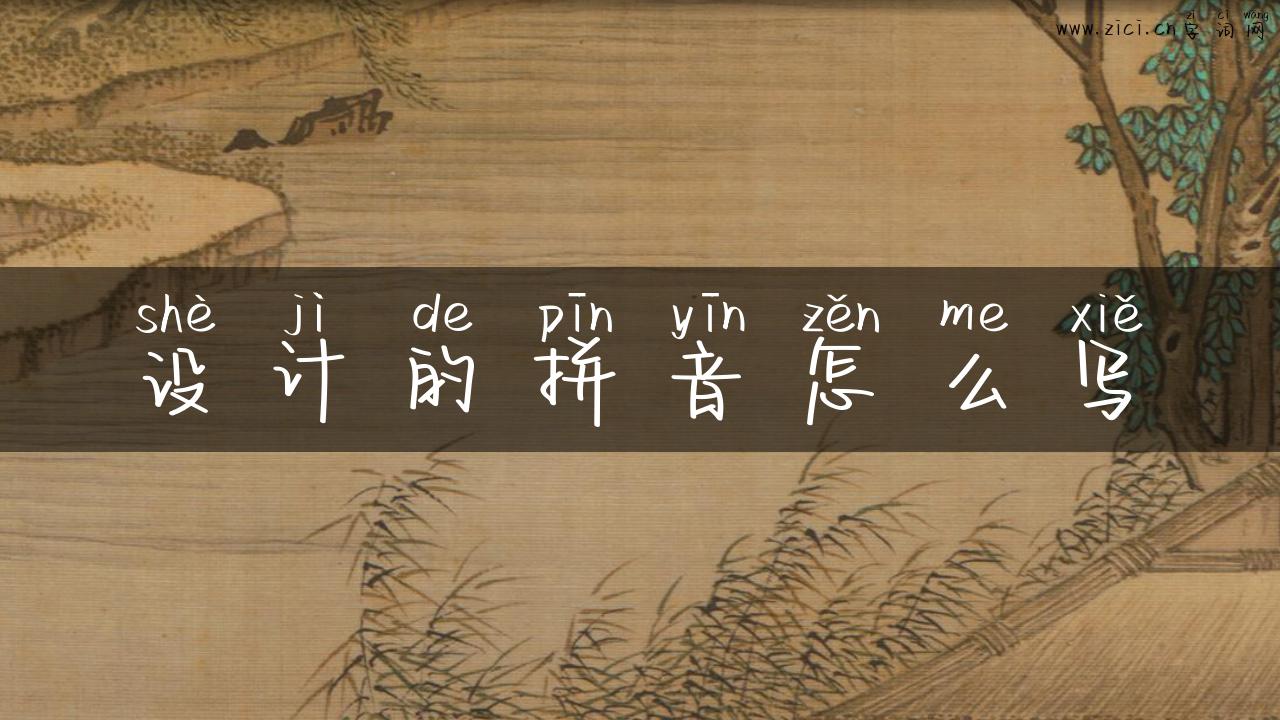 zì cí wǎng
www.zici.cn 字词网
shè jì de pīn yīn zěn me xiě
设计的拼音怎么写